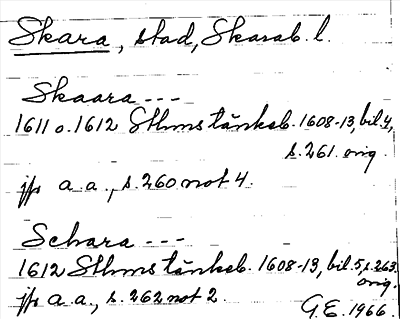 Skara, stad, Skarab. l.
Skaara ---
1611 o. 1612 Sthms tänkeb. 1608-13, bil. 4,
s. 261. orig.
jfr a.a., s. 260 not 4.
Schara ---
1612 Sthms tänkeb. 1608-13, bil. 5, s. 263.
orig.
jfr a.a., s. 262 not 2.
G.E. 1966.